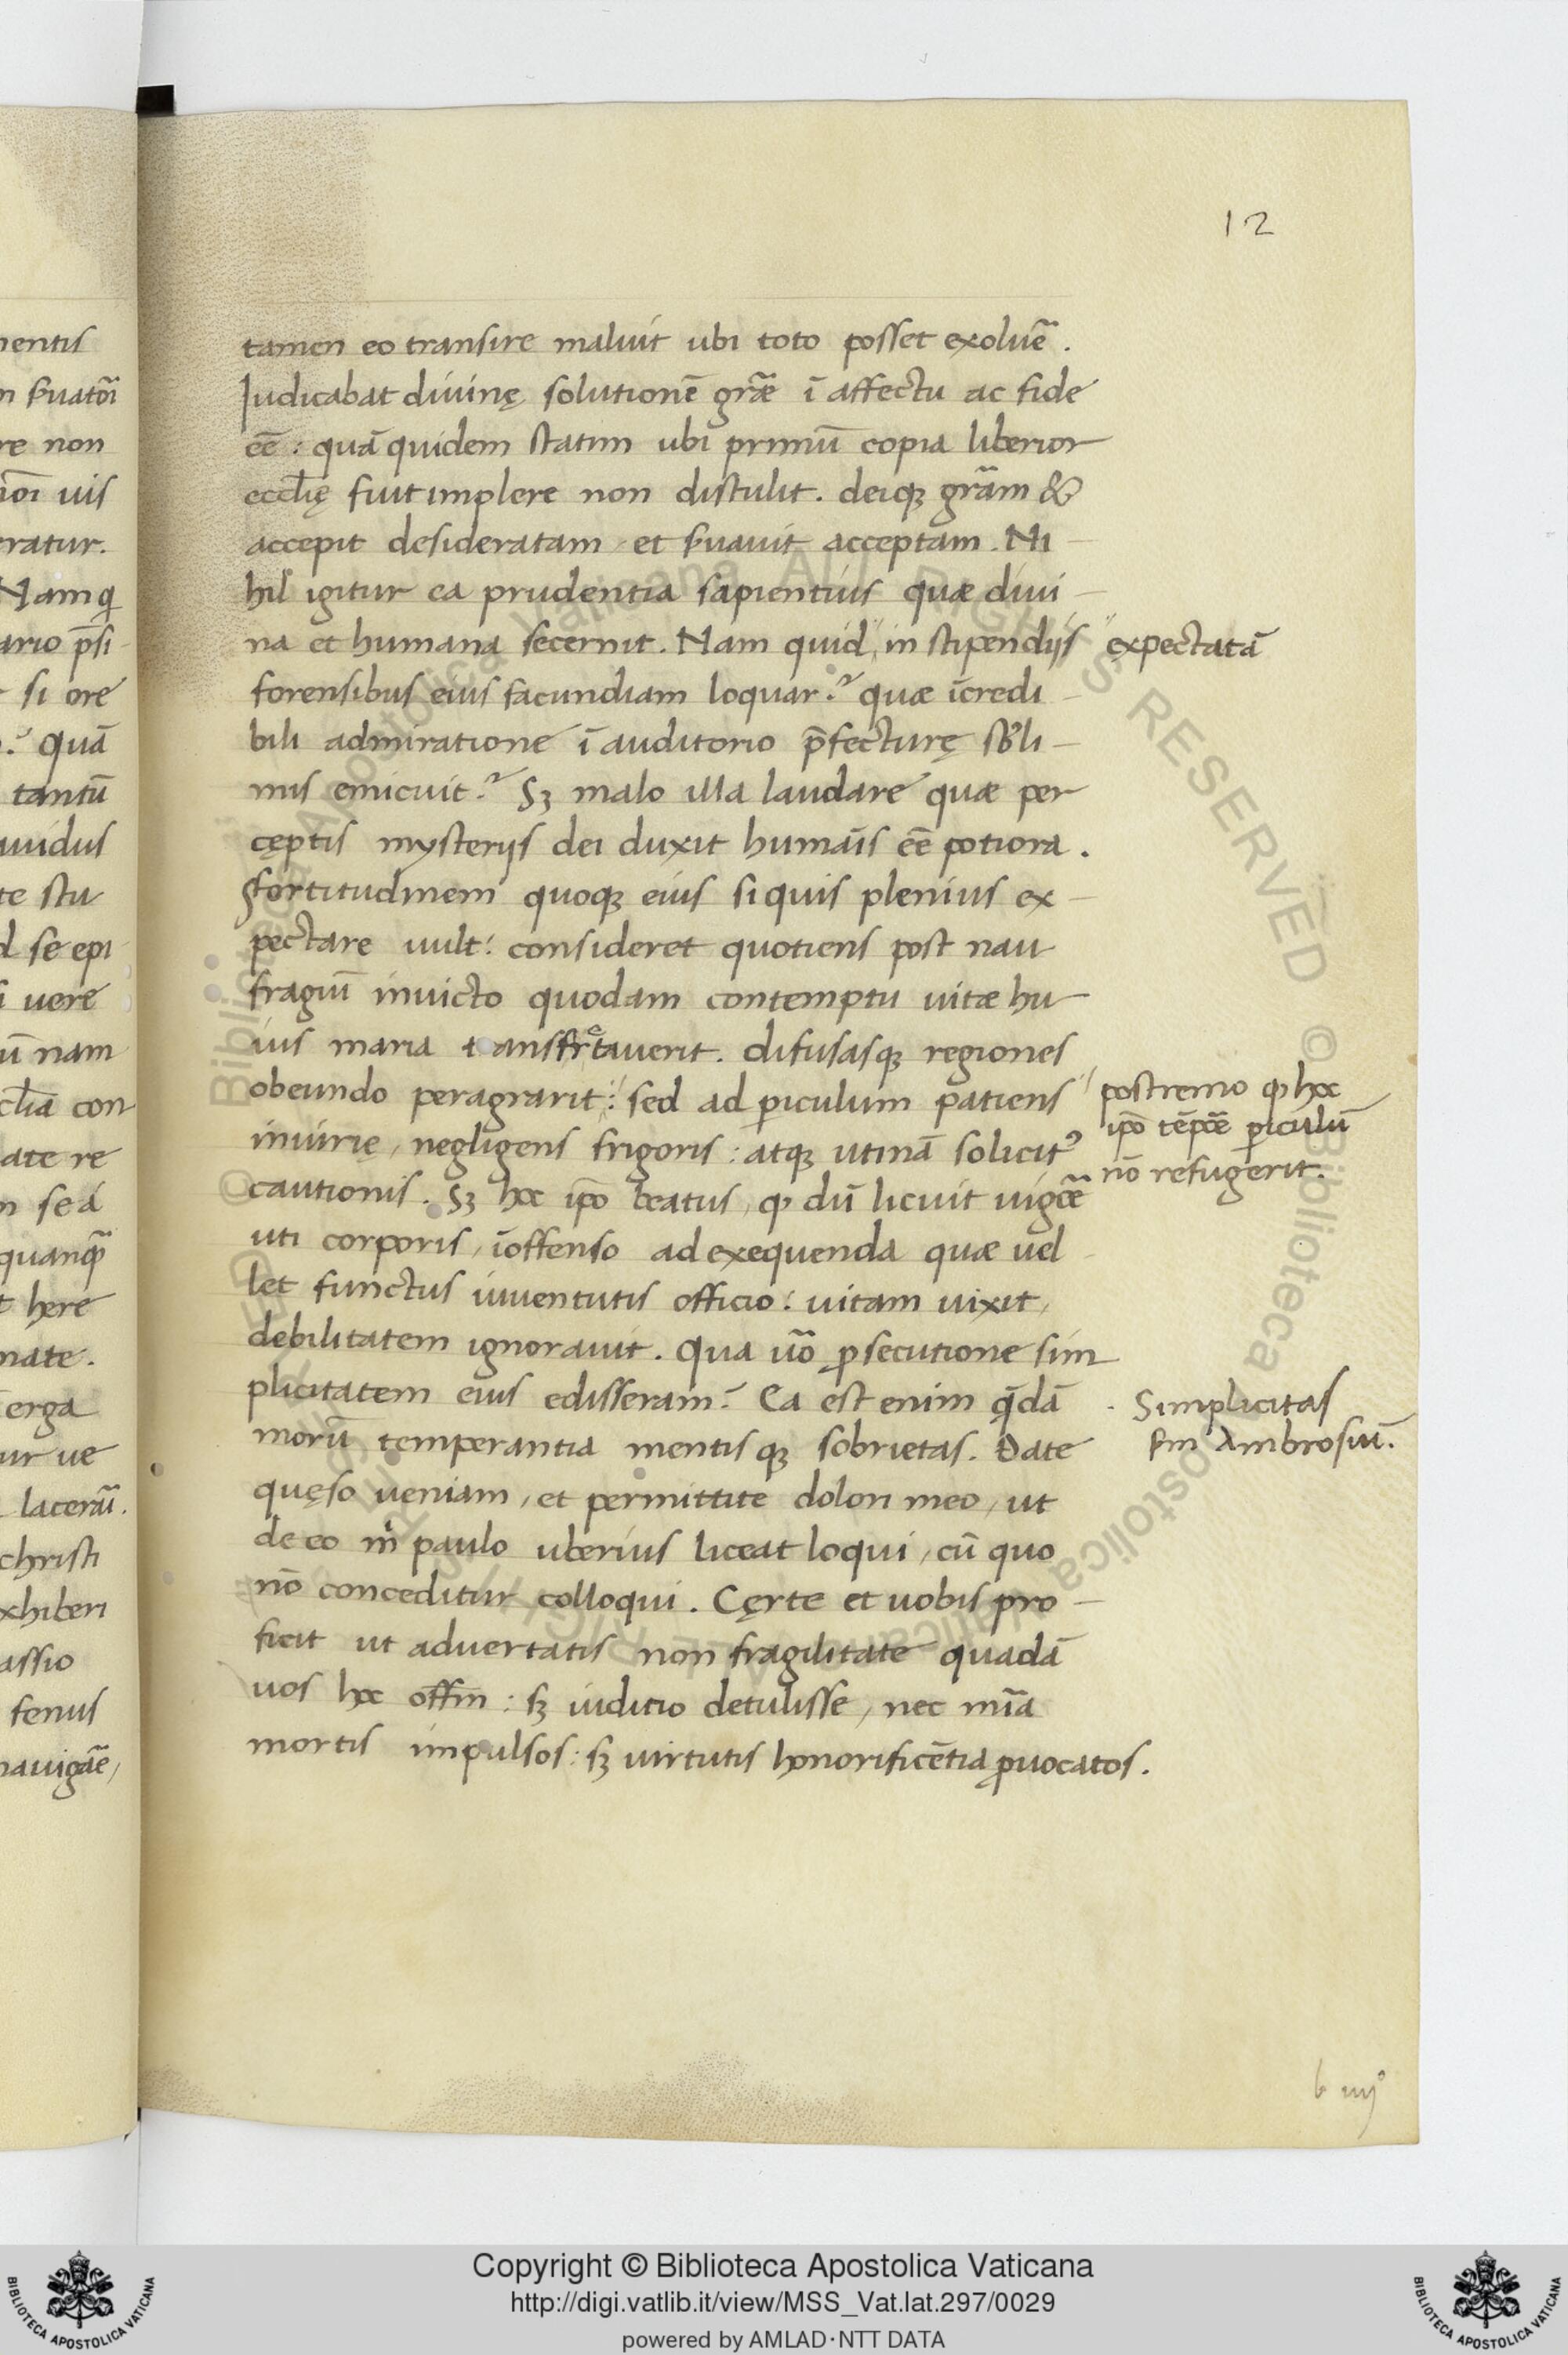 12
tamen eo transire maluit ubi toto posset exoluē̃.
Iudicabat diuinę solutionē grãe ī affectu ac fide
eē: quā quidem statim ubi primū copia liberior
eccl̄ię fuit implere non distulit. deiqȝ grãm &
accepit desideratam, et ẜuauit acceptam. Ni
hil igitur ea prudentia sapientius quæ diui
na et humana secernit. Nam quid, in stipendijs
expectatā
forensibus eius facundiam loquar? quæ īcredi
bili admiratione ī auditorio p̄fecturę sb̾li
mis emicuit? Sȝ malo illa laudare quæ per
cęptis mysterijs dei duxit humāis eē potiora.
ffortitudinem quoqȝ eius si quis plenius ex
pectare uult: consideret quotiens post nau
fragiū inuicto quodam contemptu uitæ hu
ius maria t ansfretauerit. difusasqȝ regiones
obeundo peragrarit: sed ad ꝑiculum patiens
postremo ꝙ hoc
ip̄o tēpoē ꝑiculū
nō refugerit.
iniurię, negligens frigoris: atqȝ utinā solicitꝰ
cautionis. Sȝ hoc ip̄o beatus, ꝙ dū licuit uigoē
uti corporis, īoffenso ad exequenda quæ uel
let functus iuuentutis officio: uitam uixit,
debilitatem ignorauit. Qua uõ ꝓsecutione sim
plicitatem eius edisseram? Ea est enim q̄dā
Simplicitas
ẜm Ambrosiū.
morū temperantia mentisqȝ sobrietas. Date
quęso ueniam, et permittite dolori meo, ut
de eo m paulo uberius liceat loqui, cū quo
nō conceditur colloqui. Cęrte et uobis pro
ficit ut aduertatis non fragilitate quadā
uos hoc offm̄: sȝ iuditio detulisse, nec mĩa
mortis impulsos: sȝ uirtutis honorificētia ꝓuocatos.
b iiij°
Copyright © Biblioteca Apostolica Vaticana
http://digi.vatlib.it/view/MSS_Vat.lat.297/0029
powered by AMLAD·NTT DATA
BIBLIOTECA APOSTOLICA VATICANA
BIBLIOTECA APOSTOLICA VATICANA